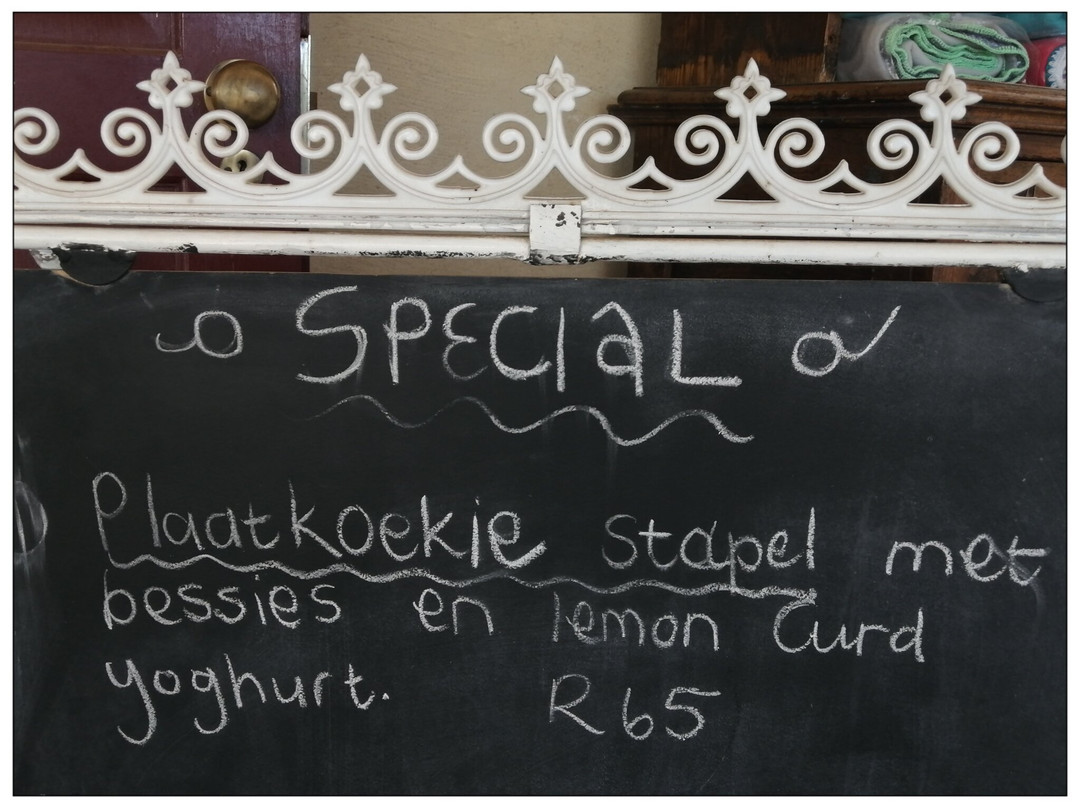 SPECIAL
Plaatkoekie stapel met
bessies en lemon Curd
yoghurt. R65